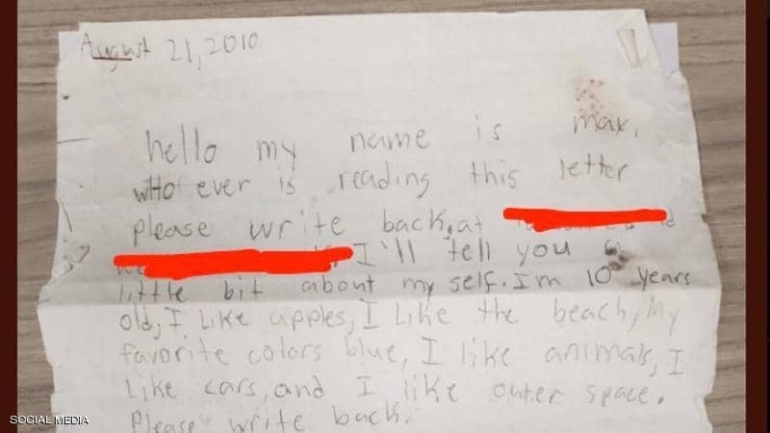 August 21, 2010
hello my name is max,
who ever is reading this letter
please write back, at
I'll tell you a
little bit about my self. Im 10 years
old, I Like apples, I Like the beach, My
favorite colors blue, I like animals, I
Like cars, and I like outer space.
Please write back.
SOCIAL MEDIA